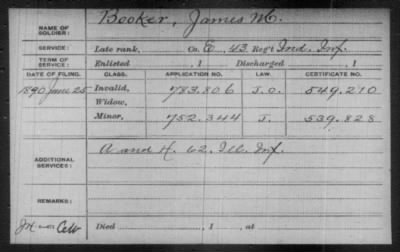 NAME OF SOLDIER: Booker, James M.
SERVICE: Late rank, Co. E, 43 Reg't Ind. Inf.
TERM OF SERVICE: Enlisted , 1 Discharged , 1
DATE OF FILING. CLASS. APPLICATION NO. LAW. CERTIFICATE NO.
1890 June 25 Invalid, 783.806 J.O. 549.210
Widow,
Minor, 752.344 J. 539.828
ADDITIONAL SERVICES: A and H. 62. Ill. Inf.
REMARKS:
Died , 1 , at